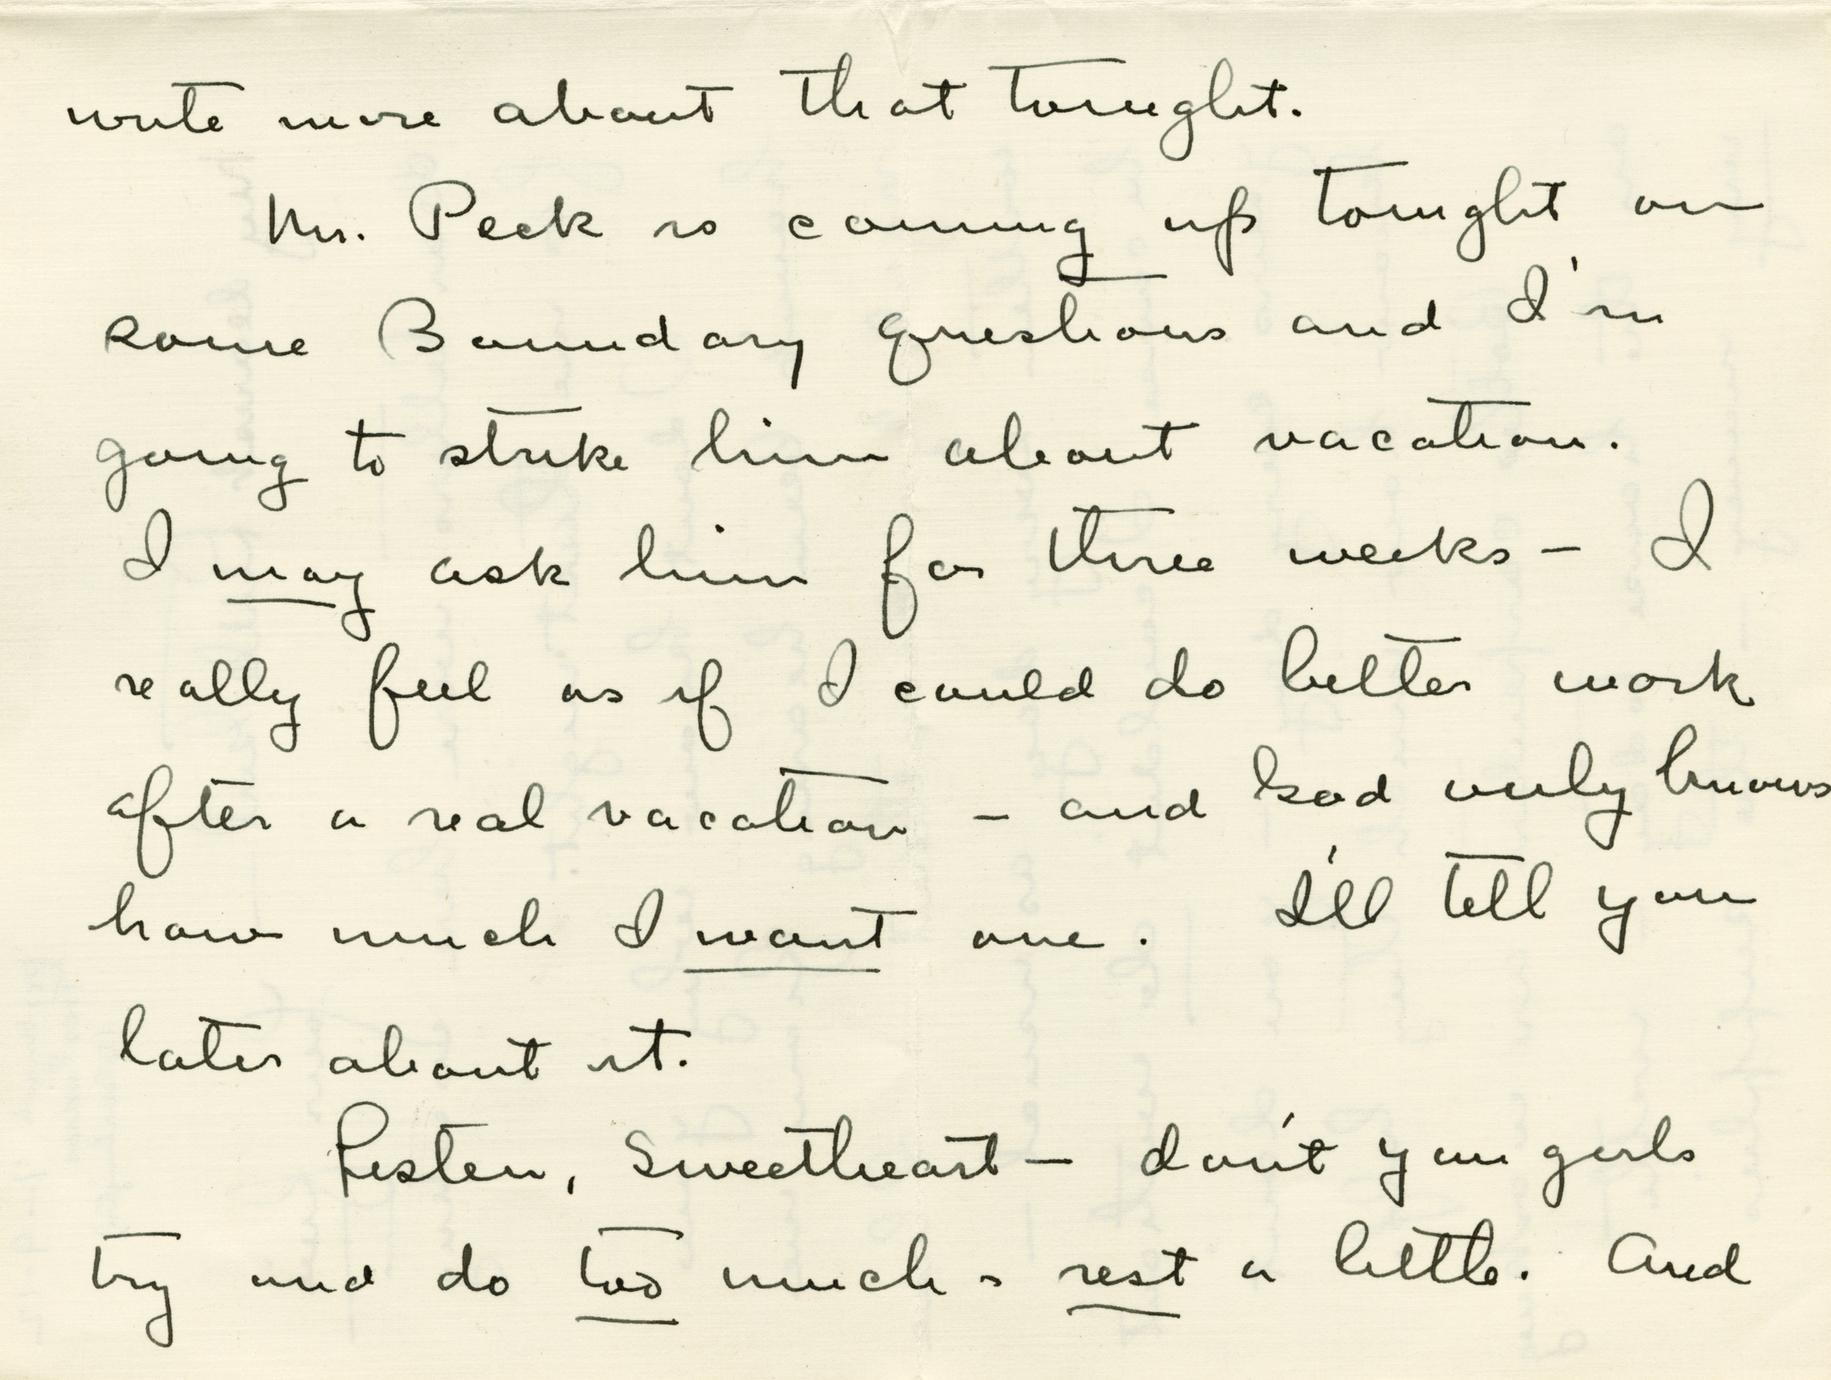 write more about that tonight.
Mr. Peck is coming up tonight on
some Boundary questions and I'm
going to strike him about vacation.
I may ask him for three weeks – I
really feel as if I could do better work
after a real vacation – and God only knows
how much I want one. I'll tell you
later about it.
Listen, Sweetheart – don't you girls
try and do too much - rest a little. And